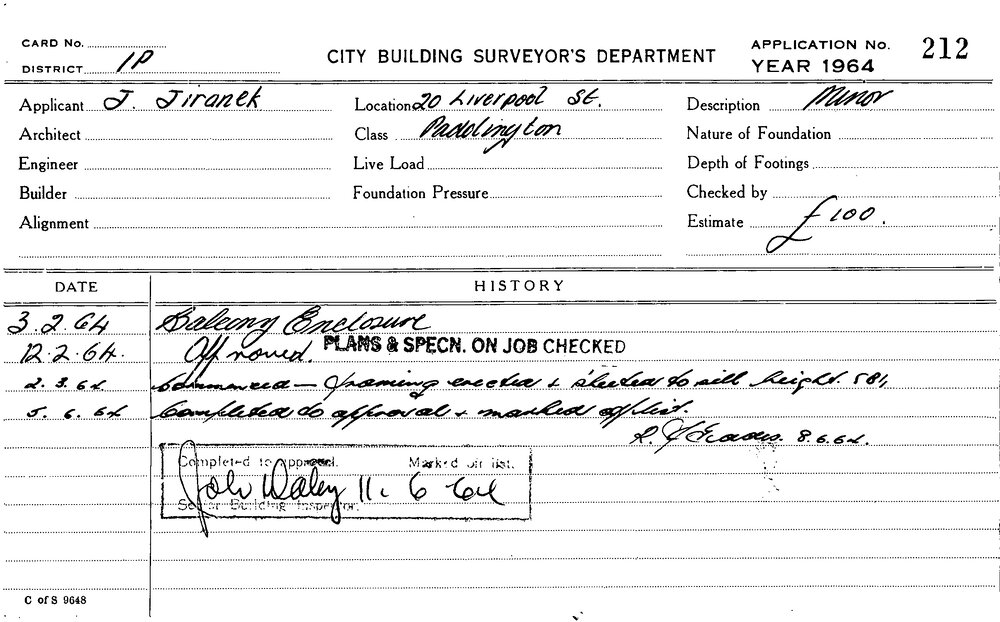 CARD No.
DISTRICT 1P
CITY BUILDING SURVEYOR'S DEPARTMENT
APPLICATION No. 212
YEAR 1964
Applicant J. Jiranek
Location 20 Liverpool St.
Description Minor
Architect
Class Paddington
Nature of Foundation
Engineer
Live Load
Depth of Footings
Builder
Foundation Pressure
Checked by
Alignment
Estimate £100.
DATE
HISTORY
3.2.64 Balcony Enclosure
12.2.64. Approved. PLANS & SPECN. ON JOB CHECKED
2.3.64 Commenced - framing erected & sheeted to sill height.
5.6.64 Completed to approval & marked off list.
8.6.64.
Completed to approval. Marked off list.
John Daley 11.6.64
Senior Building Inspector.
C of S 9648